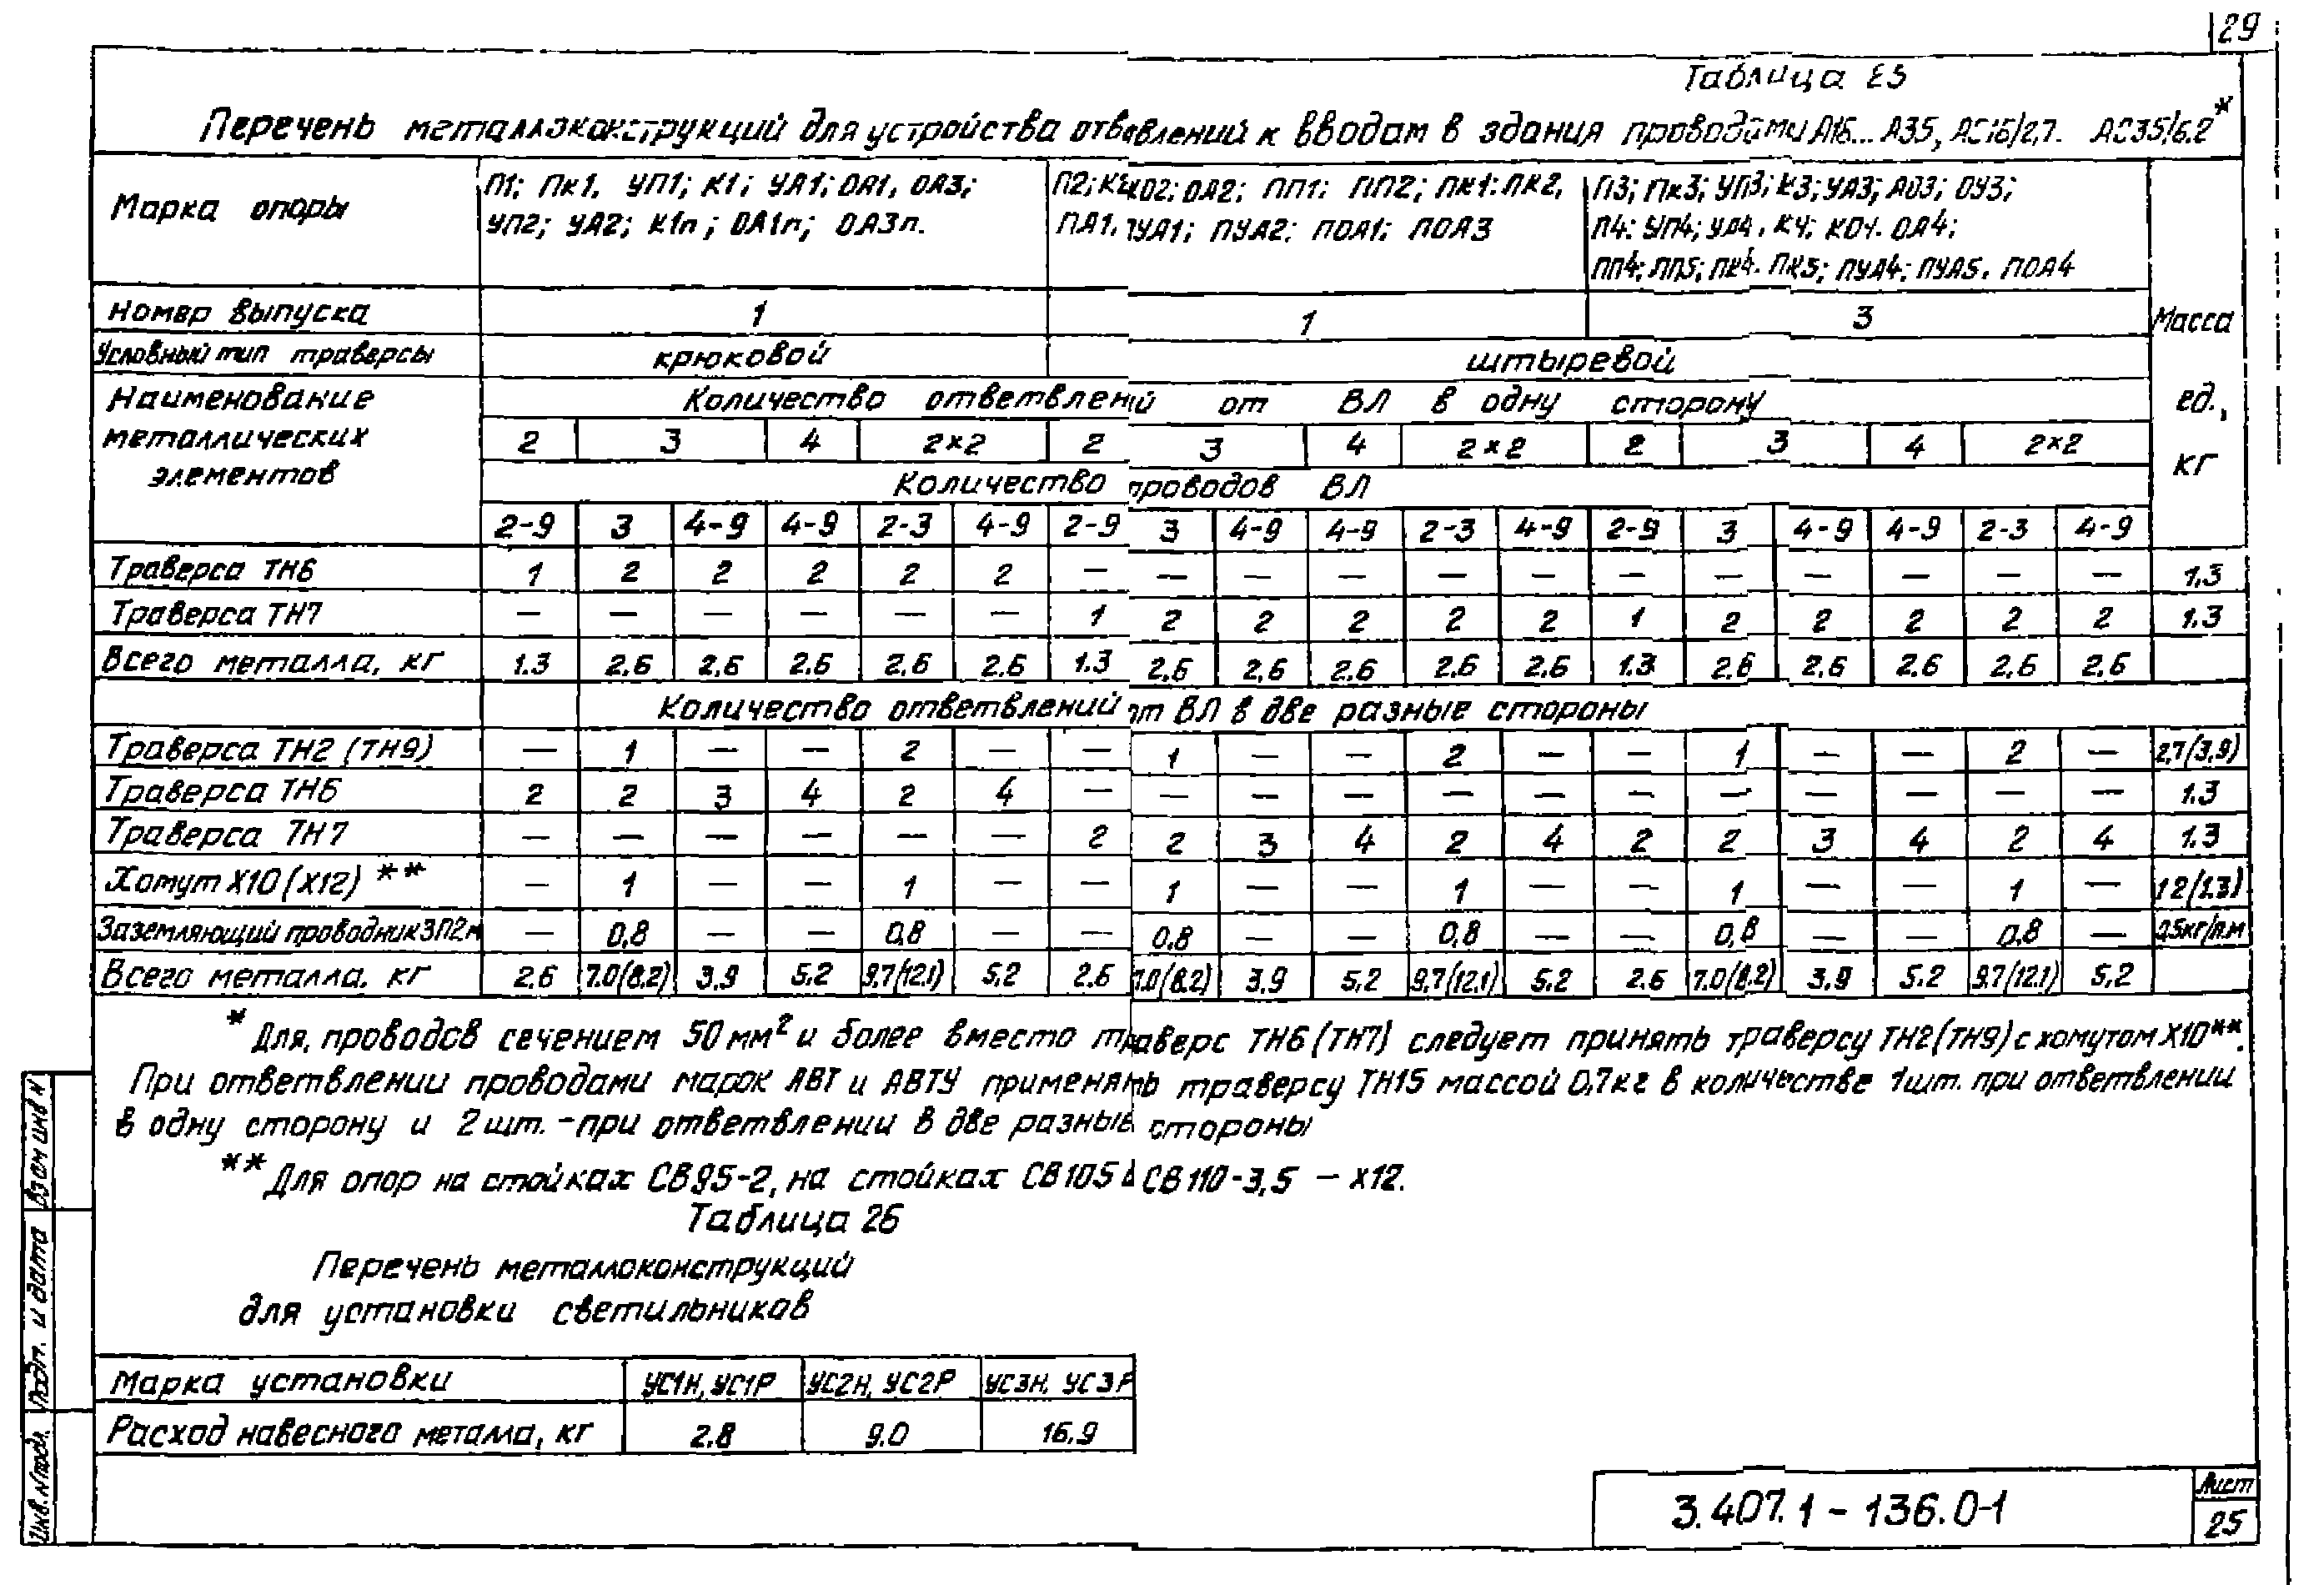 29
Таблица 25
Перечень металлоконструкций для устройства ответвлений к вводам в здания проводами А16... А35, АС16/2,7.. АС35/6.2*
Марка опоры
П1; Пк1, УП1; К1; УА1; ОА1, ОА3;
УП2; УА2; К1п; ОА1п; ОА3п.
КО2; ОА2; ПП1; ПП2; ПК1; ПК2,
ПА1, ПУА1; ПУА2; ПОА1; ПОА3
П3; Пк3; УП3; К3; УА3; АО3; ОУ3;
П4; УП4; УА4, К4; КО4. ОА4;
ПП4; ПП5; ПК4. ПК5; ПУА4; ПУА5, ПОА4
Масса ед., кг
Номер выпуска 1 1 3
Условный тип траверсы крюковой штыревой
Наименование металлических элементов
Количество ответвлений от ВЛ в одну сторону
2 3 4 2×2 2 3 4 2×2 2 3 4 2×2
Количество проводов ВЛ
2-9 3 4-9 4-9 2-3 4-9 2-9 3 4-9 4-9 2-3 4-9 2-9 3 4-9 4-9 2-3 4-9
Траверса ТН6 1 2 2 2 2 2 — — — — — — — — — — — — 1.3
Траверса ТН7 — — — — — — 1 2 2 2 2 2 1 2 2 2 2 2 1.3
Всего металла, кг 1.3 2.6 2.6 2.6 2.6 2.6 1.3 2.6 2.6 2.6 2.6 2.6 1.3 2.6 2.6 2.6 2.6 2.6
Количество ответвлений от ВЛ в две разные стороны
Траверса ТН2 (ТН9) — 1 — — 2 — — 1 — — 2 — — 1 — — 2 — 2,7(3,9)
Траверса ТН6 2 2 3 4 2 4 — — — — — — — — — — — — 1.3
Траверса ТН7 — — — — — — 2 2 3 4 2 4 2 2 3 4 2 4 1.3
Хомут Х10 (Х12) ** — 1 — — 1 — — 1 — — 1 — — 1 — — 1 — 1.2(1.3)
Заземляющий проводник ЗП2м — 0,8 — — 0,8 — — 0.8 — — 0.8 — — 0,8 — — 0.8 — 0,5кг/п.м
Всего металла, кг 2.6 7.0(8.2) 3.9 5.2 9.7(12.1) 5.2 2.6 7.0(8.2) 3.9 5.2 9.7(12.1) 5.2 2.6 7.0(8.2) 3.9 5.2 9.7(12.1) 5.2
* Для, проводов сечением 50 мм² и более вместо траверс ТН6 (ТН7) следует принять траверсу ТН2(ТН9) с хомутом Х10**.
При ответвлении проводами марок АВТ и АВТУ применять траверсу ТН15 массой 0,7кг в количестве 1шт. при ответвлении
в одну сторону и 2 шт. - при ответвлении в две разные стороны
** Для опор на стойках СВ95-2, на стойках СВ105 и СВ110-3,5 — Х12.
Таблица 26
Перечень металлоконструкций
для установки светильников
Марка установки УС1Н, УС1Р УС2Н, УС2Р УС3Н, УС3Р
Расход навесного металла, кг 2.8 9.0 16.9
Взам инв N
Подп. и дата
Инв. N подл.
3.407.1 - 136.0-1
Лист
25